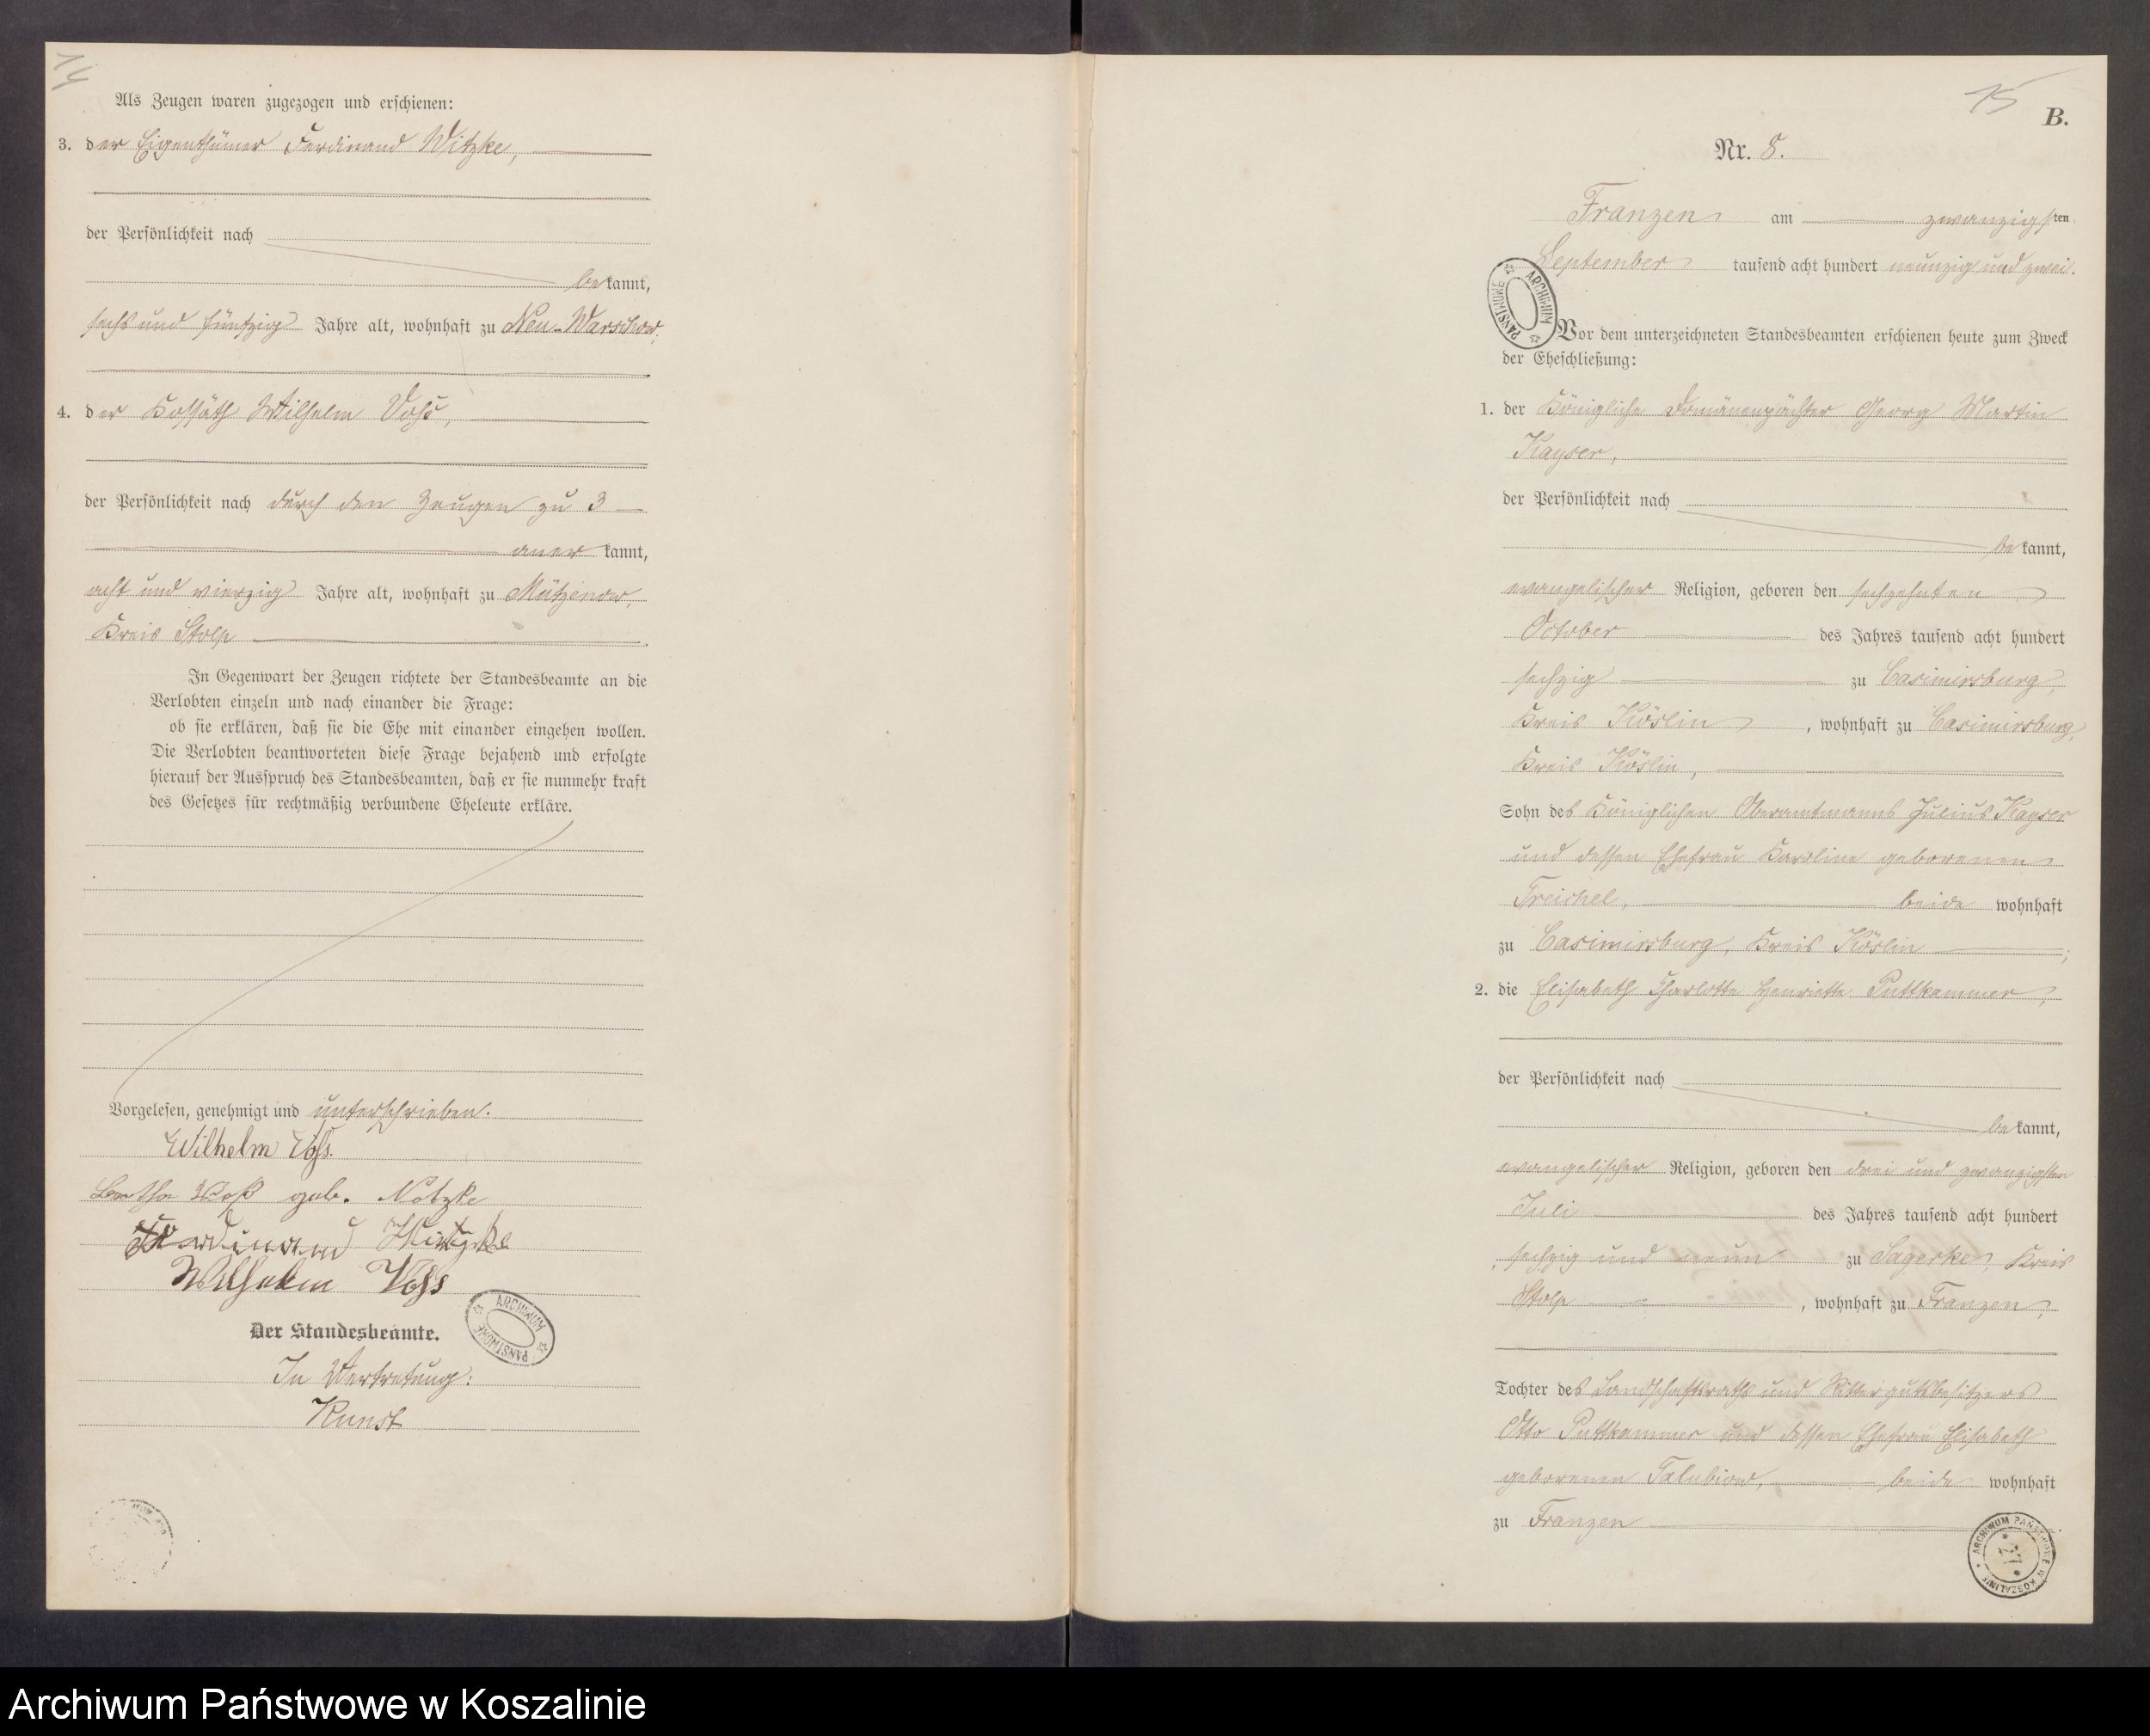 14
Als Zeugen waren zugezogen und erschienen:
3. der Eigenthümer Ferdinand Witzke,
der Persönlichkeit nach
bekannt,
sechs und fünfzig Jahre alt, wohnhaft zu Neu-Warschow,
4. der Kossäth Wilhelm Voß,
der Persönlichkeit nach durch den Zeugen zu 3
anerkannt,
acht und vierzig Jahre alt, wohnhaft zu Mützenow,
Kreis Stolp
In Gegenwart der Zeugen richtete der Standesbeamte an die
Verlobten einzeln und nach einander die Frage:
ob sie erklären, daß sie die Ehe mit einander eingehen wollen.
Die Verlobten beantworteten diese Frage bejahend und erfolgte
hierauf der Ausspruch des Standesbeamten, daß er sie nunmehr kraft
des Gesetzes für rechtmäßig verbundene Eheleute erkläre.
Vorgelesen, genehmigt und unterschrieben.
Wilhelm Voß.
Bertha Voß geb. Nötzke
Ferdinand Witzke
Wilhelm Voss
Der Standesbeamte.
In Vertretung:
Kunst
ARCHIWUM PAŃSTWOWE
15
B.
Nr. 8.
Franzen am zwanzigsten
September tausend acht hundert neunzig und zwei.
ARCHIWUM PAŃSTWOWE
Vor dem unterzeichneten Standesbeamten erschienen heute zum Zweck
der Eheschließung:
1. der Königliche Domänenpächter Georg Martin
Kayser,
der Persönlichkeit nach
bekannt,
evangelischer Religion, geboren den sechzehnten
October des Jahres tausend acht hundert
sechzig zu Casimirsburg,
Kreis Köslin, wohnhaft zu Casimirsburg,
Kreis Köslin,
Sohn des Königlichen Oberamtmanns Julius Kayser
und dessen Ehefrau Karoline geborenen
Treichel, beide wohnhaft
zu Casimirsburg, Kreis Köslin;
2. die Elisabeth Charlotte Henriette Puttkammer,
der Persönlichkeit nach
bekannt,
evangelischer Religion, geboren den drei und zwanzigsten
Juli des Jahres tausend acht hundert
sechzig und neun zu Sagerke, Kreis
Stolp, wohnhaft zu Franzen,
Tochter des Landschaftsraths und Rittergutsbesitzers
Otto Puttkammer und dessen Ehefrau Elisabeth
geborenen beide wohnhaft
zu Franzen
ARCHIWUM PAŃSTWOWE W KOSZALINIE
Archiwum Państwowe w Koszalinie